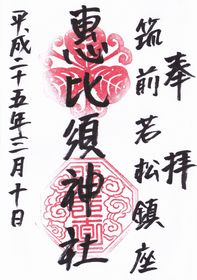 奉拝
筑前若松鎮座
恵比須神社
平成二十五年三月十日